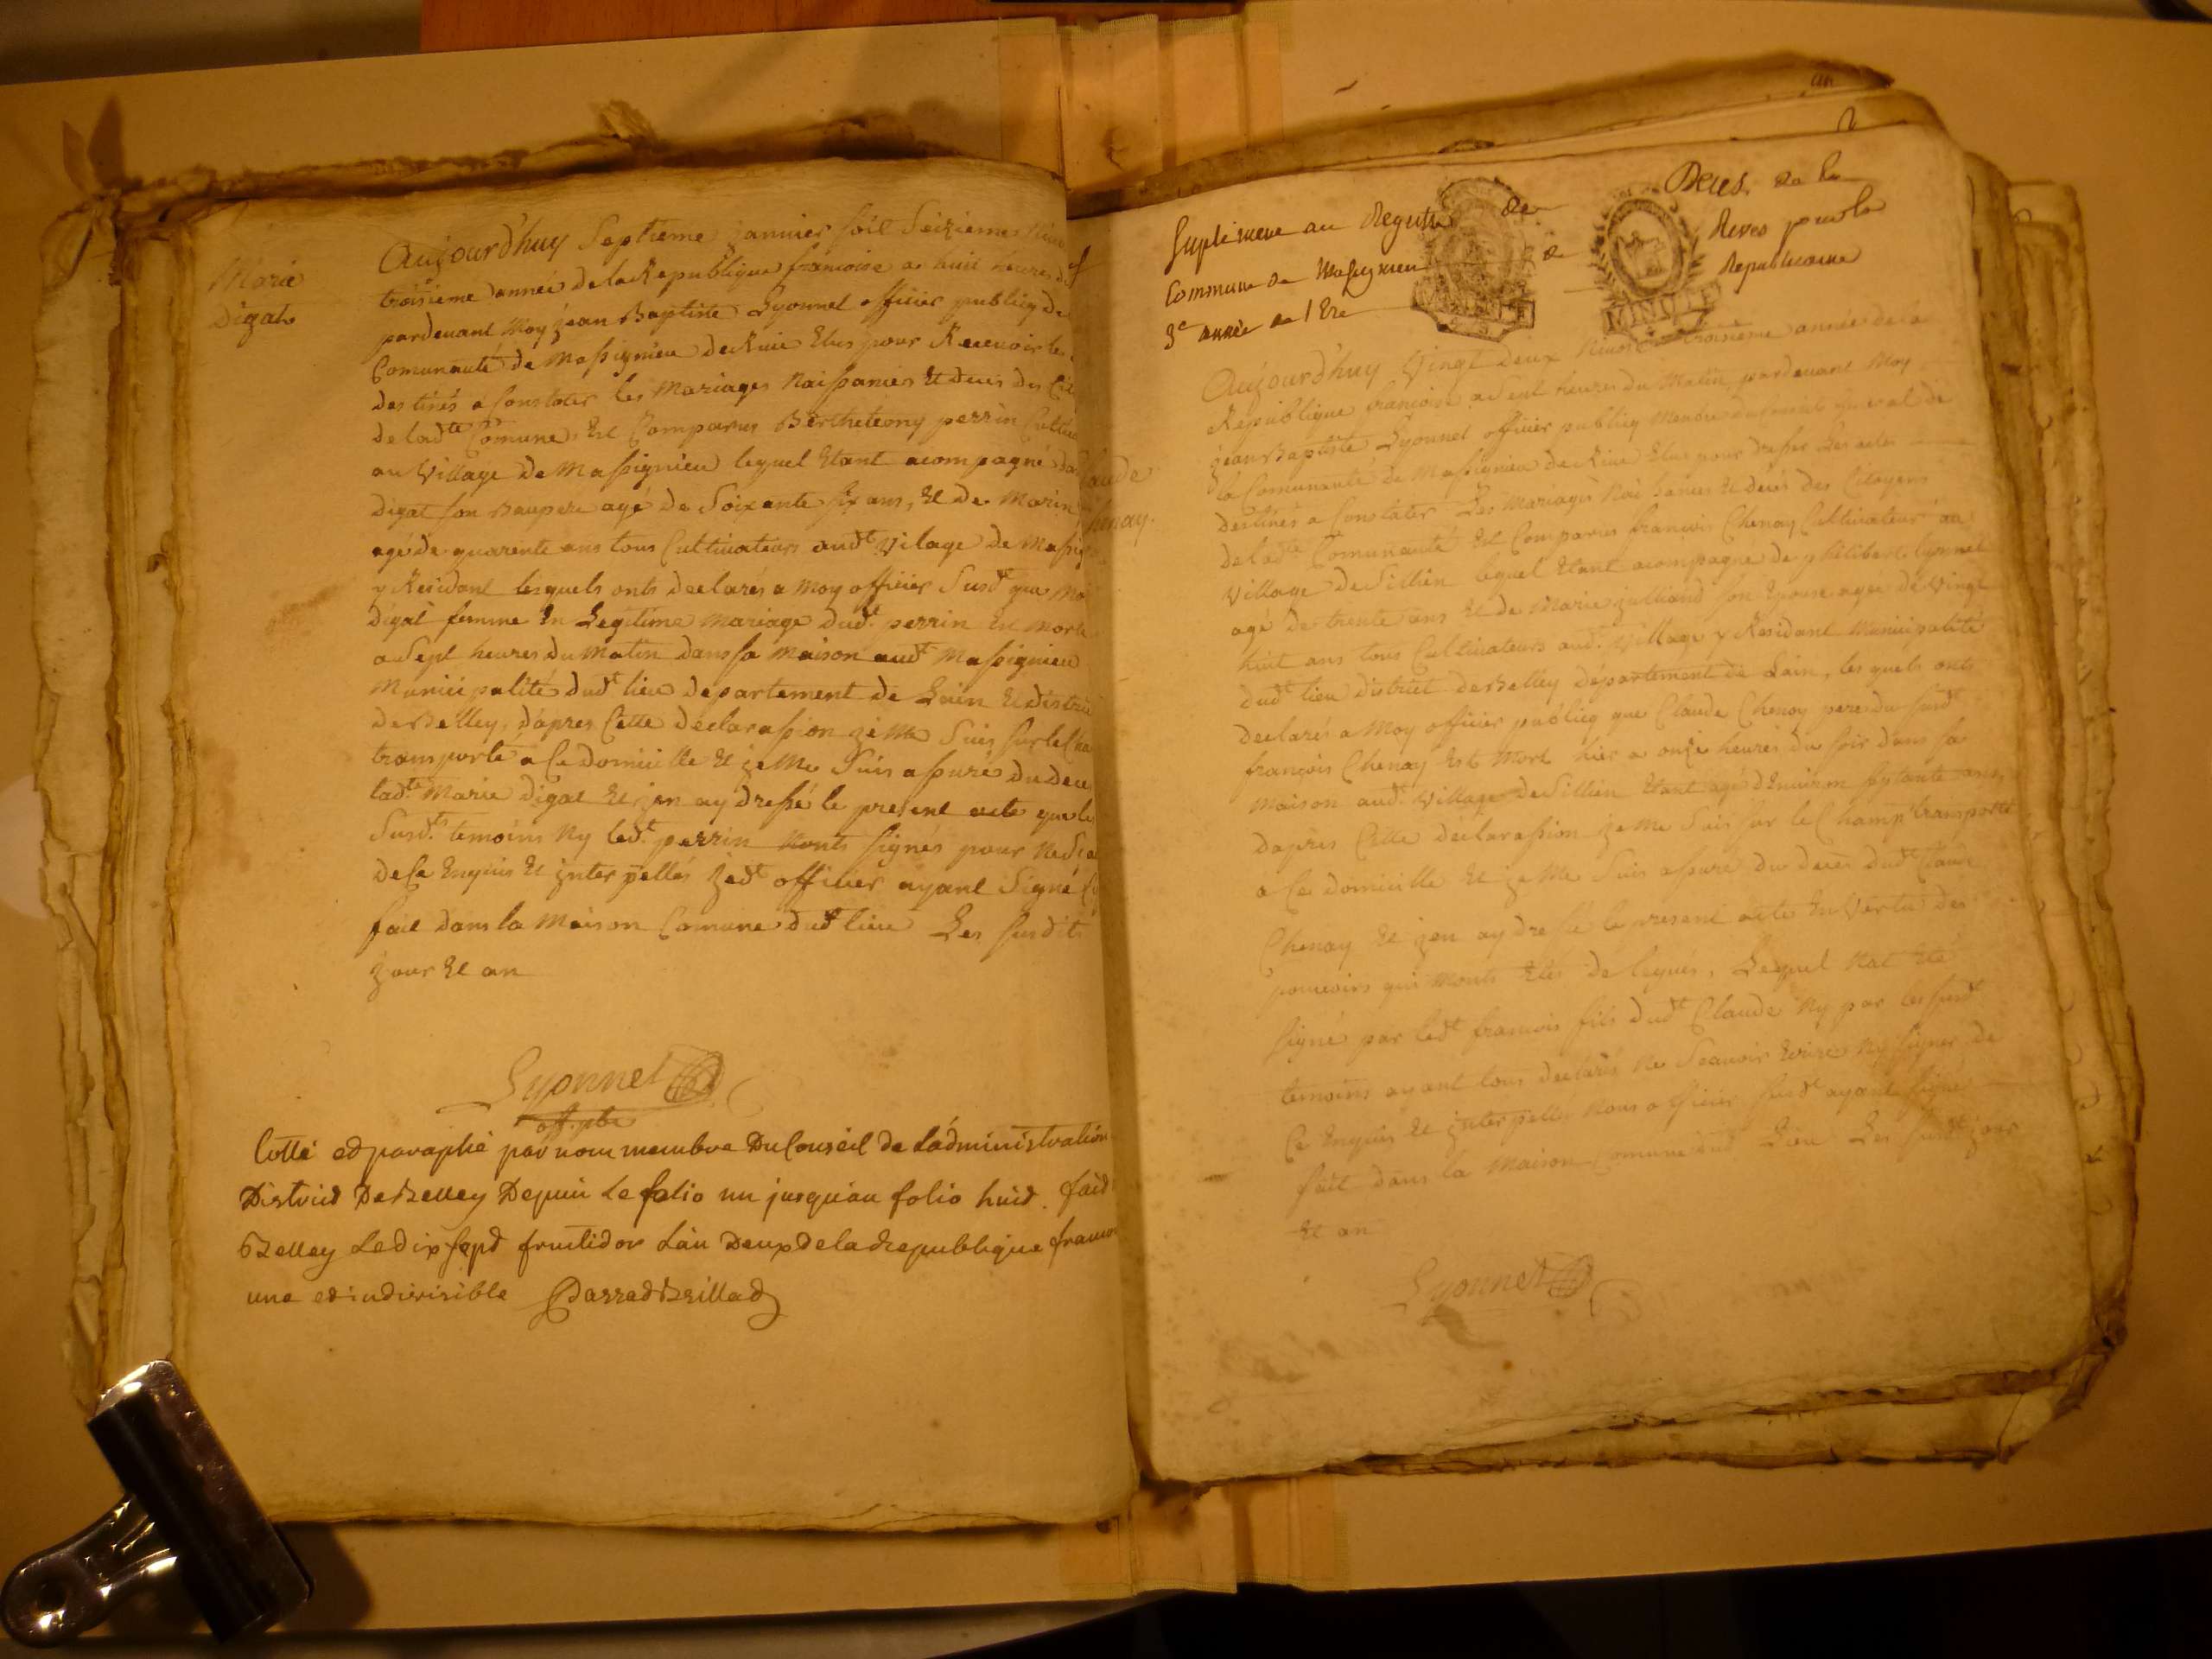 Marie
Digat
Aujourd'huy Septieme zanvier soit Seizieme Nivo
troisieme année de la Republique francoise a huit heures du
pardevant Moy zean Baptiste Lyonnet officier publicq de
Comunauté de Massignieu de Rive Elus pour Recevoir les
destinés a Constater les Mariages Naissances Et deces des Cit
de ladte Comune Est Comparus Berthelemy perrin Cultiv
au Village de Massignieu lequel Etant acompagné de
digat son Baupere agé de Soixante six ans, Et de Marin
agé de quarente ans tous Cultivateurs audt Vilage de Massig
y Residant lesquels onts declarés a Moy officier Susdt que Ma
digat femme En Legitime Mariage dudt perrin Est Morte
a Sept heures du Matin dans sa Maison audt Massignieu
Municipalité dudt lieu departement de Lain Et distric
de Belley, d'apres Cette declarassion ze Me Suis sur le Cha
transporté a Ce domicille Et ze Me Suis assuré du dece
ladte Marie digat Et zen ay dressé le present acte que les
Susdts temoins Ny ledt perrin Nonts signés pour Ne S
de Ce Enquis Et znterpellés zedt officier ayant Signé
fait dans la Maison Comune dudt lieu Les susdits
zour Et an
Lyonnet
off. pbc
Cotté et paraphé par nous membre Du Conseil de L'administration
District De Belley Depuis Le folio un jusqu'au folio huit. fait
Belley Le dix sept fructidor L'an Deux de la republique franco
une et indivisible
aude
henay.
Suplement au Registre de Deces de la
Commune de Massignieu de Rives pour la
3e année de l'Ere Republicaine
Aujourd'huy Vingt deux Nivose troisieme année de la
Republique francoise a Sept heures du Matin pardevant Moy
zean Baptiste Lyonnet officier publicq Membre du Conseil general de
la Comunauté de Massignieu de Rive Elus pour dresser Les actes
destinés a Constater Les Mariages Naissances Et decés des Citoyens
de ladte Comunauté Est Comparus francois Chenay Cultivateur au
Village de Sillien lequel Etant acompagné de philibert Lyonnet
agé de trente ans Et de Marie zulliand son Epouse agée de Vingt
huit ans tous Cultivateurs audt Village y Residant Municipalité
dudt lieu district de Belley département de Lain, les quels onts
declarés a Moy officier publicq que Claude Chenay pere du susdt
françois Chenay Est Mort hier a onze heures du soir dans sa
Maison audt Village de Sillien Etant agé d'Environ Septante ans,
d'apres Cette declarassion ze Me Suis sur le Champ transporté
a Ce domicille Et ze Me Suis assuré du deces dudt Claude
Chenay Et zen ay dressé le present acte En Vertu des
pouvoirs qui Monts Etés delegués, Lequel Nat Eté
signé par ledt francois fils dudt Claude Ny par les susdt
temoins ayant tous declarés Ne Scavoir Ecrire Ny signer de
Ce Enquis Et znterpellés Nous officier susdt ayant signé
fait dans la Maison Comune dudt Lieu Les susdt zour
Et an
Lyonnet